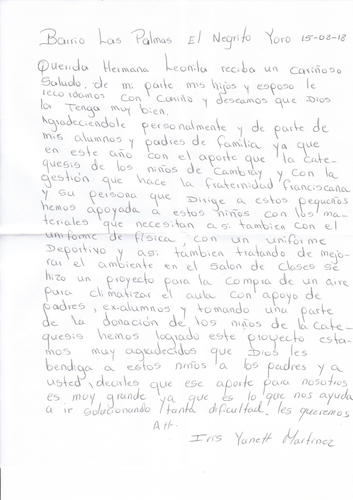 Barrio Las Palmas El Negrito Yoro 15-03-18
Querida Hermana Leonila reciba un cariñoso
Saludo, de mi parte mis hijos y esposo le
recordamos con Cariño y deseamos que Dios
la Tenga muy bien.
Agradeciendole personalmente y de parte de
mis alumnos y padres de familia ya que
en este año con el aporte que la Cate-
quesis de los niños de Cambray y con la
gestión que hace la fraternidad franciscana
y su persona que Dirige a estos pequeños
hemos apoyado a estos niños con los ma-
teriales que necesitan asi tambien con el
uniforme de fisica, con un uniforme
Deportivo y asi tambien tratando de mejo-
rar el ambiente en el salon de clases se
hizo un proyecto para la compra de un aire
para climatizar el aula con apoyo de
padres, exalumnos y tomando una parte
de la donación de los niños de la Cate-
quesis hemos logrado este proyecto esta-
mos muy agradecidos que Dios les
bendiga a estos niños a los padres y a
usted, decirles que ese aporte para nosotros
es muy grande ya que es lo que nos ayuda
a ir solucionando tanta dificultad. les queremos
Att.
Iris Yanett Martinez